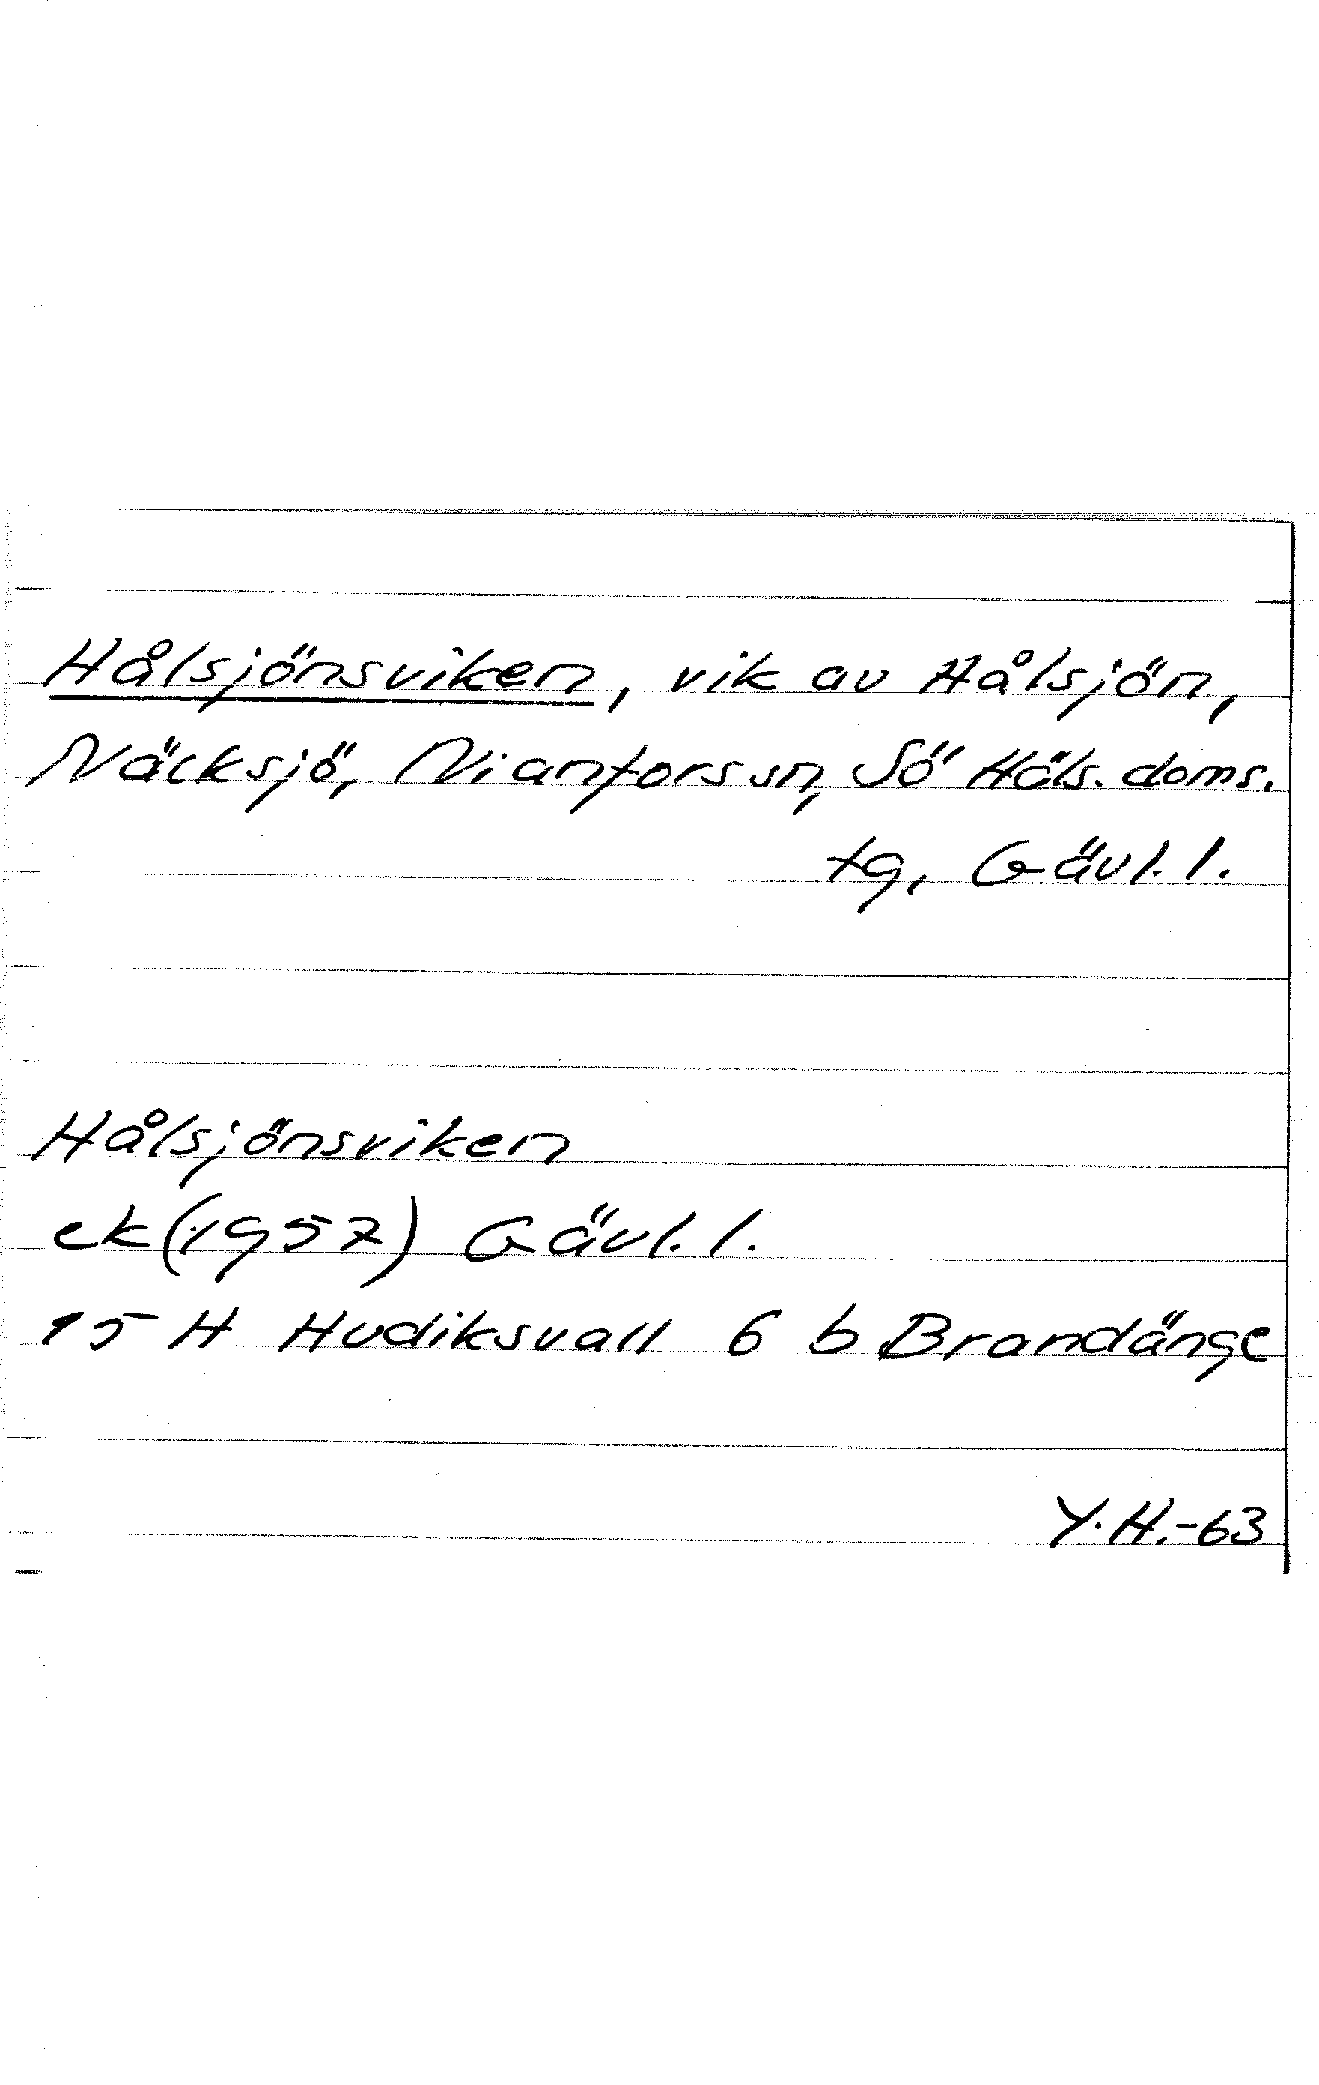 Hålsjönsviken, vik av Hålsjön,
Näcksjö, Nianforssn, Sö Häls. doms.
tg, Gävl. l.
Hålsjönsviken
ek (1957) Gävl. l.
15 H Hudiksvall 6 b Brandänge
Y.H.-63